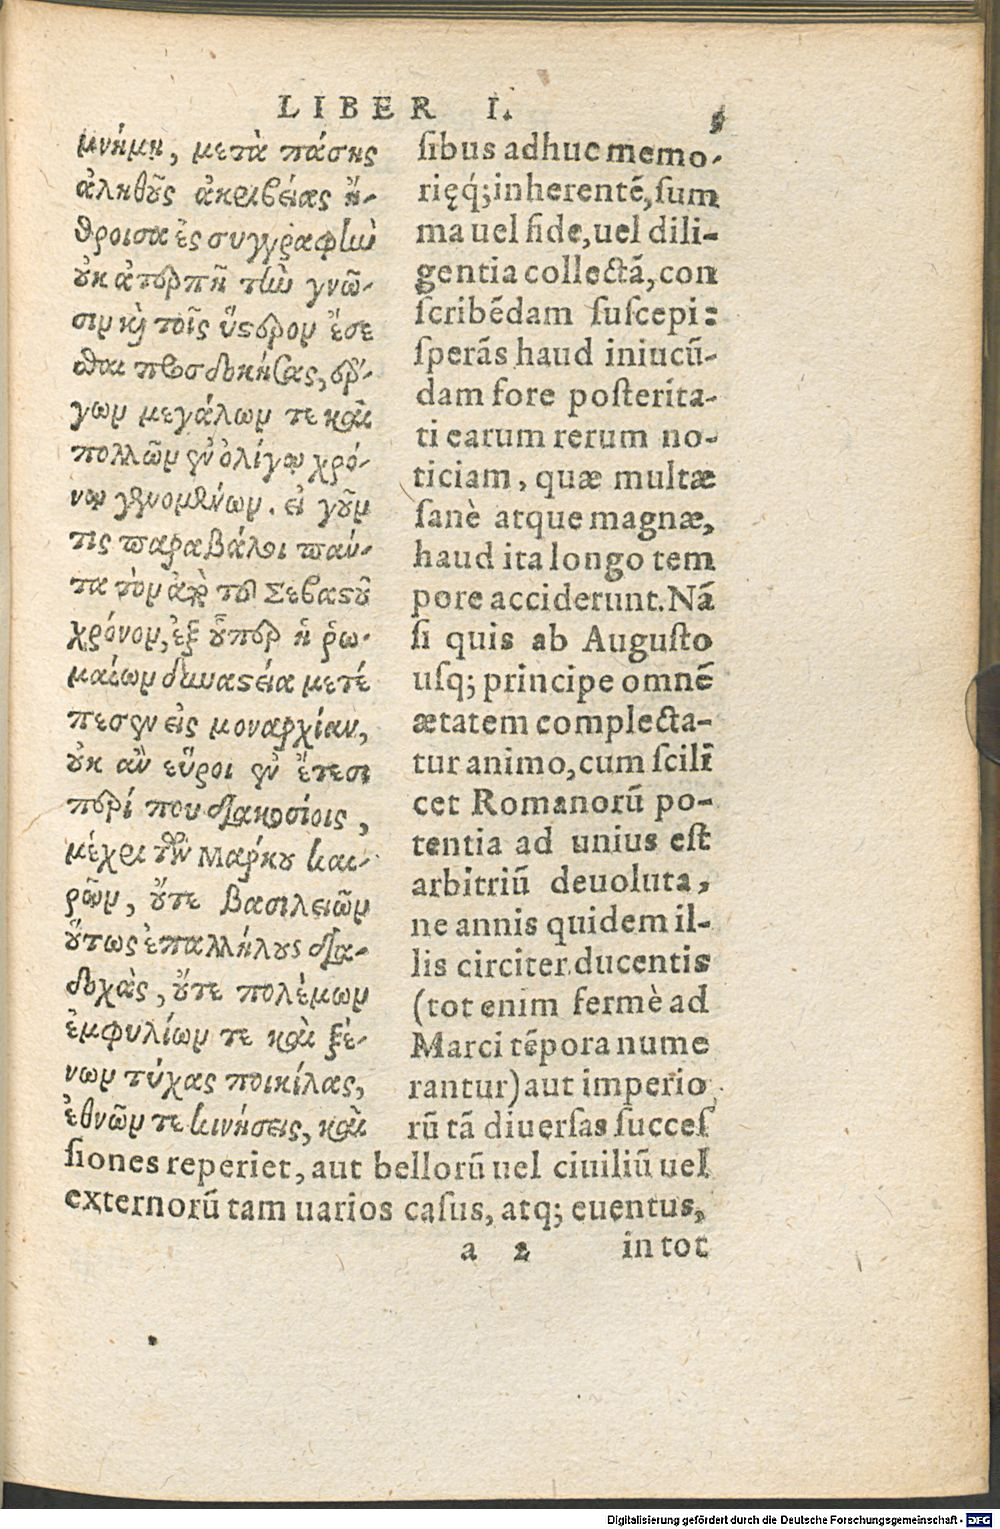 LIBER I.
μνήμῃ, μετὰ πάσης
ἀληθοῦς ἀκριβείας ἤ-
θροισα ἐς συγγραφὴν
οὐκ ἀτερπῆ τὴν γνῶ-
σιν καὶ τοῖς ὕστερον ἔσε
σθαι προσδοκήσας, ἔρ-
γων μεγάλων τε καὶ
πολλῶν ἐν ὀλίγῳ χρό-
νῳ γενομένων. εἰ γοῦν
τις παραβάλοι πάν-
τα τὸν ἀπὸ τοῦ Σεβαστοῦ
χρόνον, ἐξ οὗπερ ἡ ῥω-
μαίων δυναστεία μετέ
πεσεν εἰς μοναρχίαν,
οὐκ ἂν εὕροι ἐν ἔτεσι
περί που διακοσίοις,
μέχρι τῶν Μάρκου και-
ρῶν, οὔτε βασιλειῶν
οὕτως ἐπαλλήλους δια-
δοχὰς, οὔτε πολέμων
ἐμφυλίων τε καὶ ξέ-
νων τύχας ποικίλας,
ἐθνῶν τε κινήσεις, καὶ
ſibus adhuc memo-
rięq́;inherentē,ſum
ma uel fide,uel dili-
gentia collectā,con
ſcribēdam ſuſcepi:
ſperãs haud iniucũ-
dam fore poſterita-
ti earum rerum no-
ticiam, quæ multæ
ſanè atque magnæ,
haud ita longo tem
pore acciderunt.Nā
ſi quis ab Auguſto
uſq; principe omnē
ætatem complecta-
tur animo,cum ſcilī
cet Romanorũ po-
tentia ad unius eſt
arbitriũ deuoluta,
ne annis quidem il-
lis circiter ducentis
(tot enim fermè ad
Marci tēpora nume
rantur)aut imperio
rũ tã diuerſas ſucceſ
ſiones reperiet, aut bellorũ uel ciuiliũ uel
externorũ tam uarios caſus, atq; euentus,
a 2 in tot
Digitalisierung gefördert durch die Deutsche Forschungsgemeinschaft - DFG